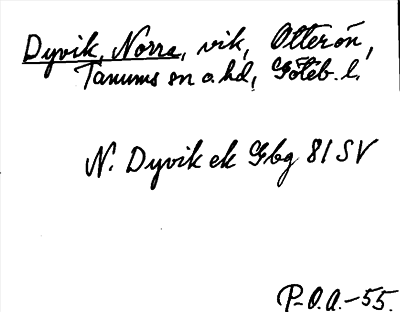 Dyvik, Norra, vik, Otterön,
Tanums sn o. hd, Göteb. l.
N. Dyvik ek Gbg 81 SV
P-O.A.-55.